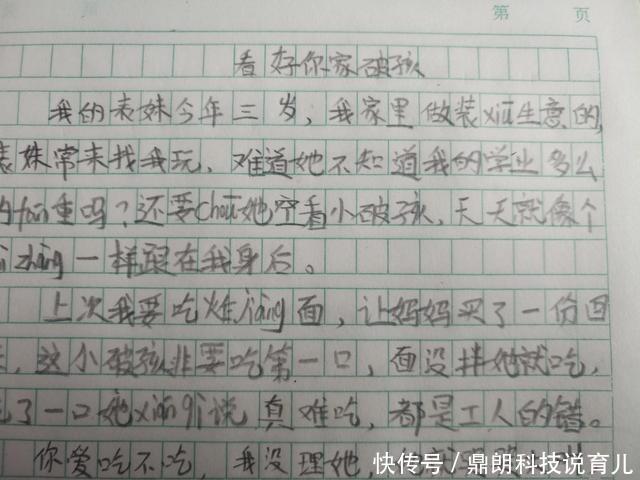 第 页
看好你家破孩
我的表妹今年三岁，我家里做装xiū生意的，
表妹常来找我玩，难道她不知道我的学业多么
重吗？还要chōu她空看小破孩，天天就像个
zhāng一样跟在我身后。
上次我要吃炸jiàng面，让妈妈买了一份回
，这小破孩非要吃第一口，面没拌她就吃，
了一口她xián qì说真难吃，都是工人的错。
你爱吃不吃，我没理她，
快传号／鼎朗科技说育儿